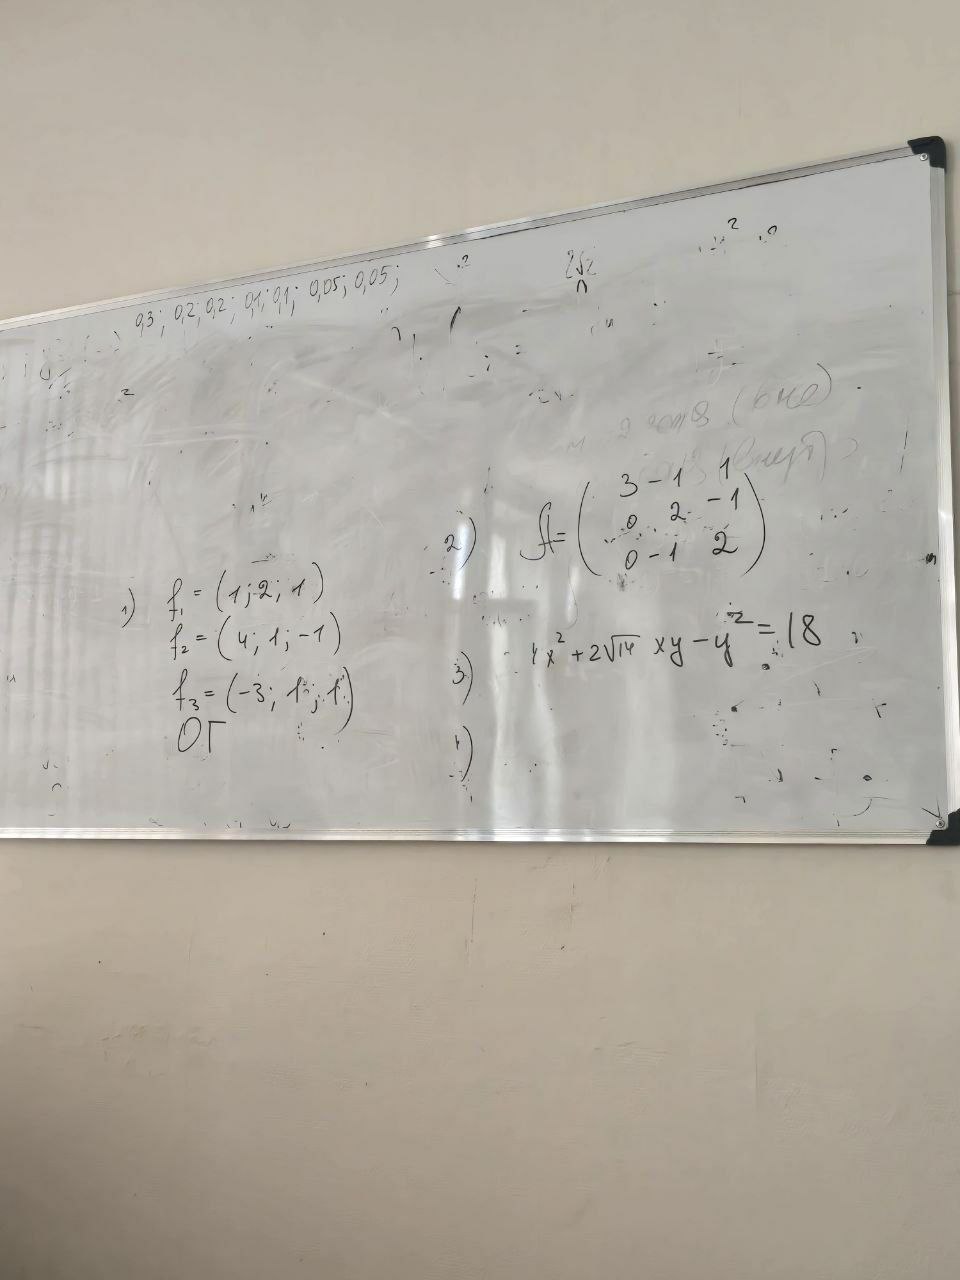 0,3; 0,2; 0,2; 0,1; 0,1; 0,05; 0,05;
2√2
n
(вне)
1) f₁ = (1; 2; 1)
f₂ = (4; 1; -1)
f₃ = (-3; 1; 1)
ОГ
2) A = ( 3 -1 1
0 2 -1
0 -1 2 )
3) 4x² + 2√14 xy - y² = 18
4)